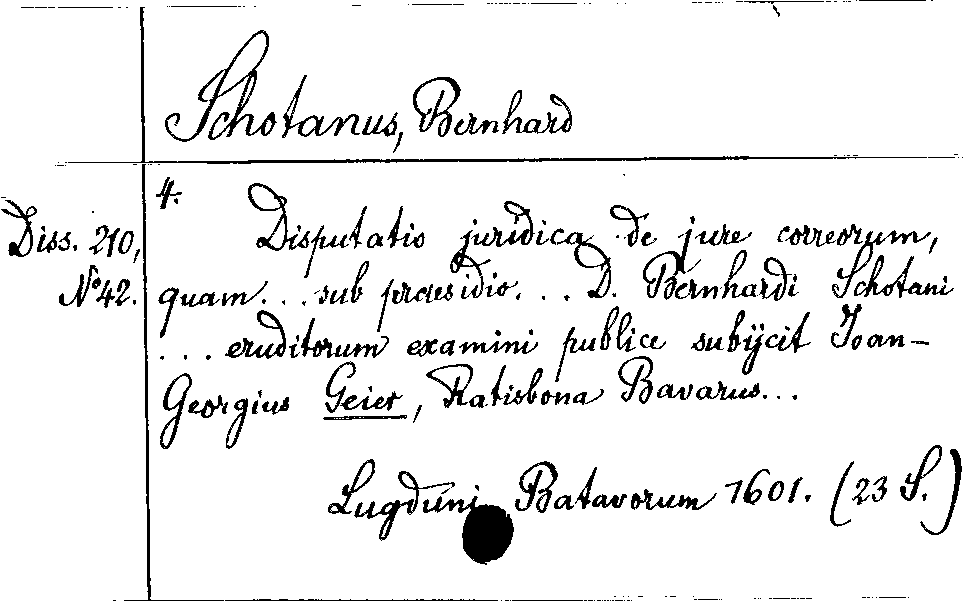 Schotanus, Bernhard
4.
Diss. 210,
No 42.
Disputatio juridica de jure correorum,
quam ... sub praesidio ... D. Bernhardi Schotani
... eruditorum examini publice subÿcit Ioan-
Georgius Geier, Ratisbona Bavarus ...
Lugduni Batavorum 1601. (23 S.)